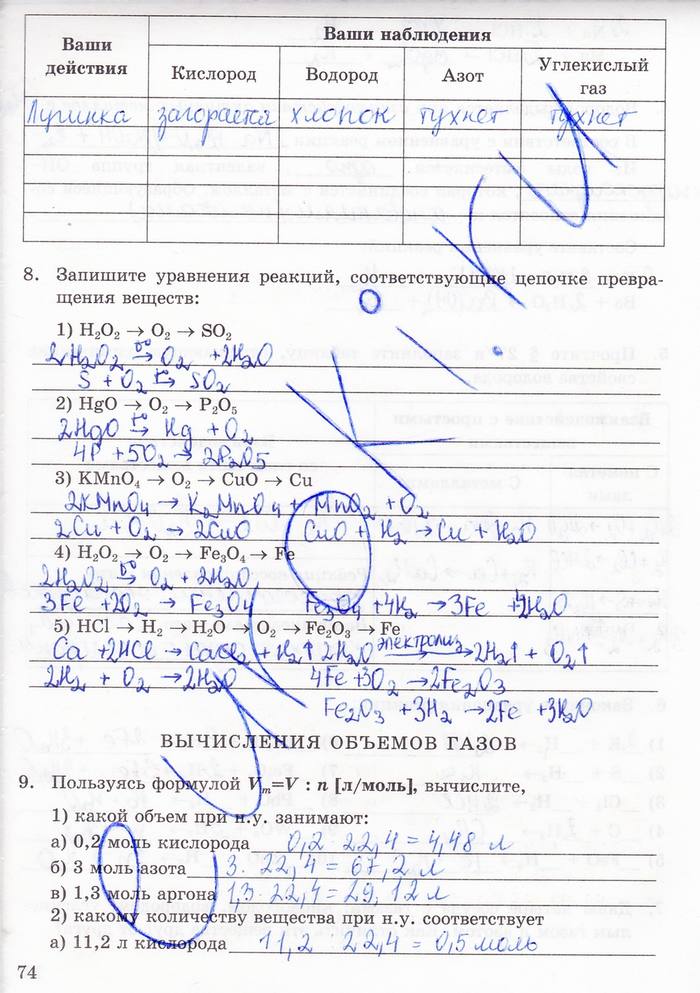 Ваши действия
Ваши наблюдения
Кислород
Водород
Азот
Углекислый газ
Лучинка загорается хлопок тухнет тухнет
8. Запишите уравнения реакций, соответствующие цепочке превра-
щения веществ:
1) H₂O₂ → O₂ → SO₂
2H₂O₂ → O₂ + 2H₂O
S + O₂ → SO₂
2) HgO → O₂ → P₂O₅
2HgO → Hg + O₂
4P + 5O₂ → 2P₂O5
3) KMnO₄ → O₂ → CuO → Cu
2KMnO₄ → K₂MnO₄ + MnO₂ + O₂
2Cu + O₂ → 2CuO CuO + H₂ → Cu + H₂O
4) H₂O₂ → O₂ → Fe₃O₄ → Fe
2H₂O₂ → O₂ + 2H₂O
3Fe + 2O₂ → Fe₃O₄ Fe₃O₄ + 4H₂ → 3Fe + 4H₂O
5) HCl → H₂ → H₂O → O₂ → Fe₂O₃ → Fe
Ca + 2HCl → CaCl₂ + H₂↑ 2H₂O электролиз → 2H₂↑ + O₂↑
2H₂ + O₂ → 2H₂O 4Fe + 3O₂ → 2Fe₂O₃
Fe₂O₃ + 3H₂ → 2Fe + 3H₂O
ВЫЧИСЛЕНИЯ ОБЪЕМОВ ГАЗОВ
9. Пользуясь формулой Vₘ=V : n [л/моль], вычислите,
1) какой объем при н.у. занимают:
а) 0,2 моль кислорода 0,2 · 22,4 = 4,48 л
б) 3 моль азота 3 · 22,4 = 67,2 л
в) 1,3 моль аргона 1,3 · 22,4 = 29,12 л
2) какому количеству вещества при н.у. соответствует
а) 11,2 л кислорода 11,2 22,4 = 0,5 моль
74